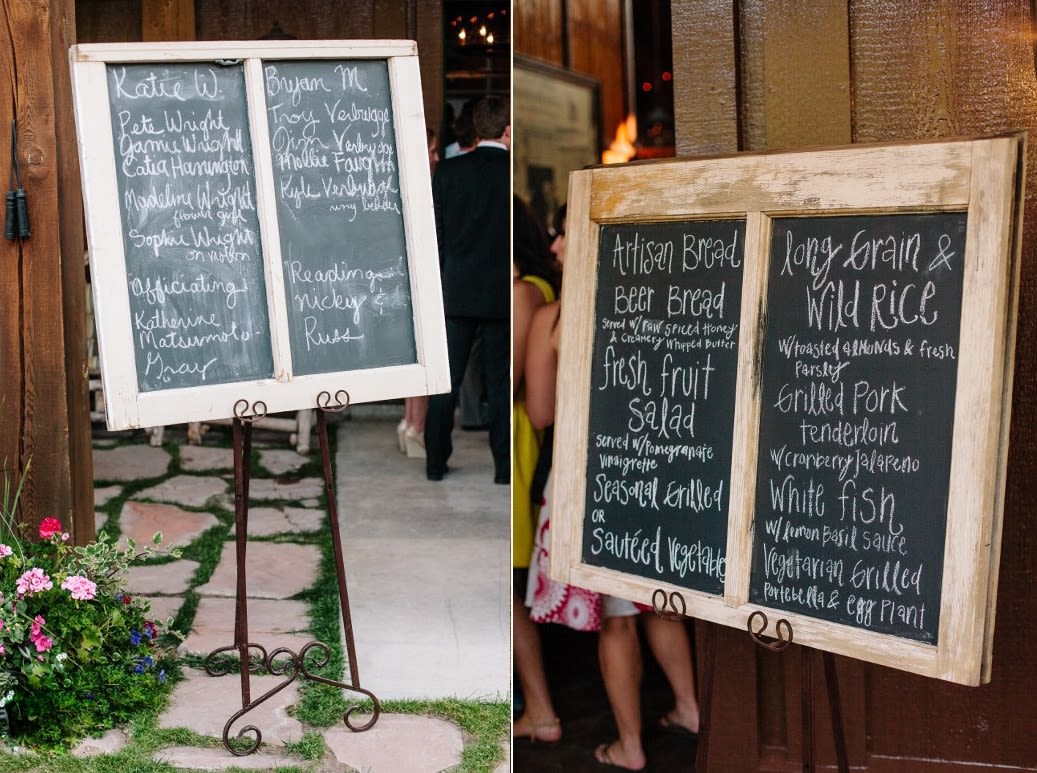 Katie W.
Pete Wright
Jamie Wright
Catea Harrington
Madeline Wright
flower girl
Sophie Wright
on violin
Officiating
Katherine
Matsumoto-
Gray
Bryan M
Troy Verbrugge
Jim Verbrugge
Mollie Faughn
Kyle Verbrugge
ring holder
Reading
Nickey &
Russ
Artisan Bread
Beer Bread
Served w/ raw spiced Honey
& creamery whipped butter
fresh fruit
Salad
served w/pomegranate
vinaigrette
Seasonal Grilled
or
Sautéed Vegetable
long Grain &
Wild Rice
w/toasted almonds & fresh
Parsley
Grilled Pork
tenderloin
w/cranberry jalapeno
White fish
w/ lemon basil sauce
Vegetarian Grilled
Portebella & egg Plant